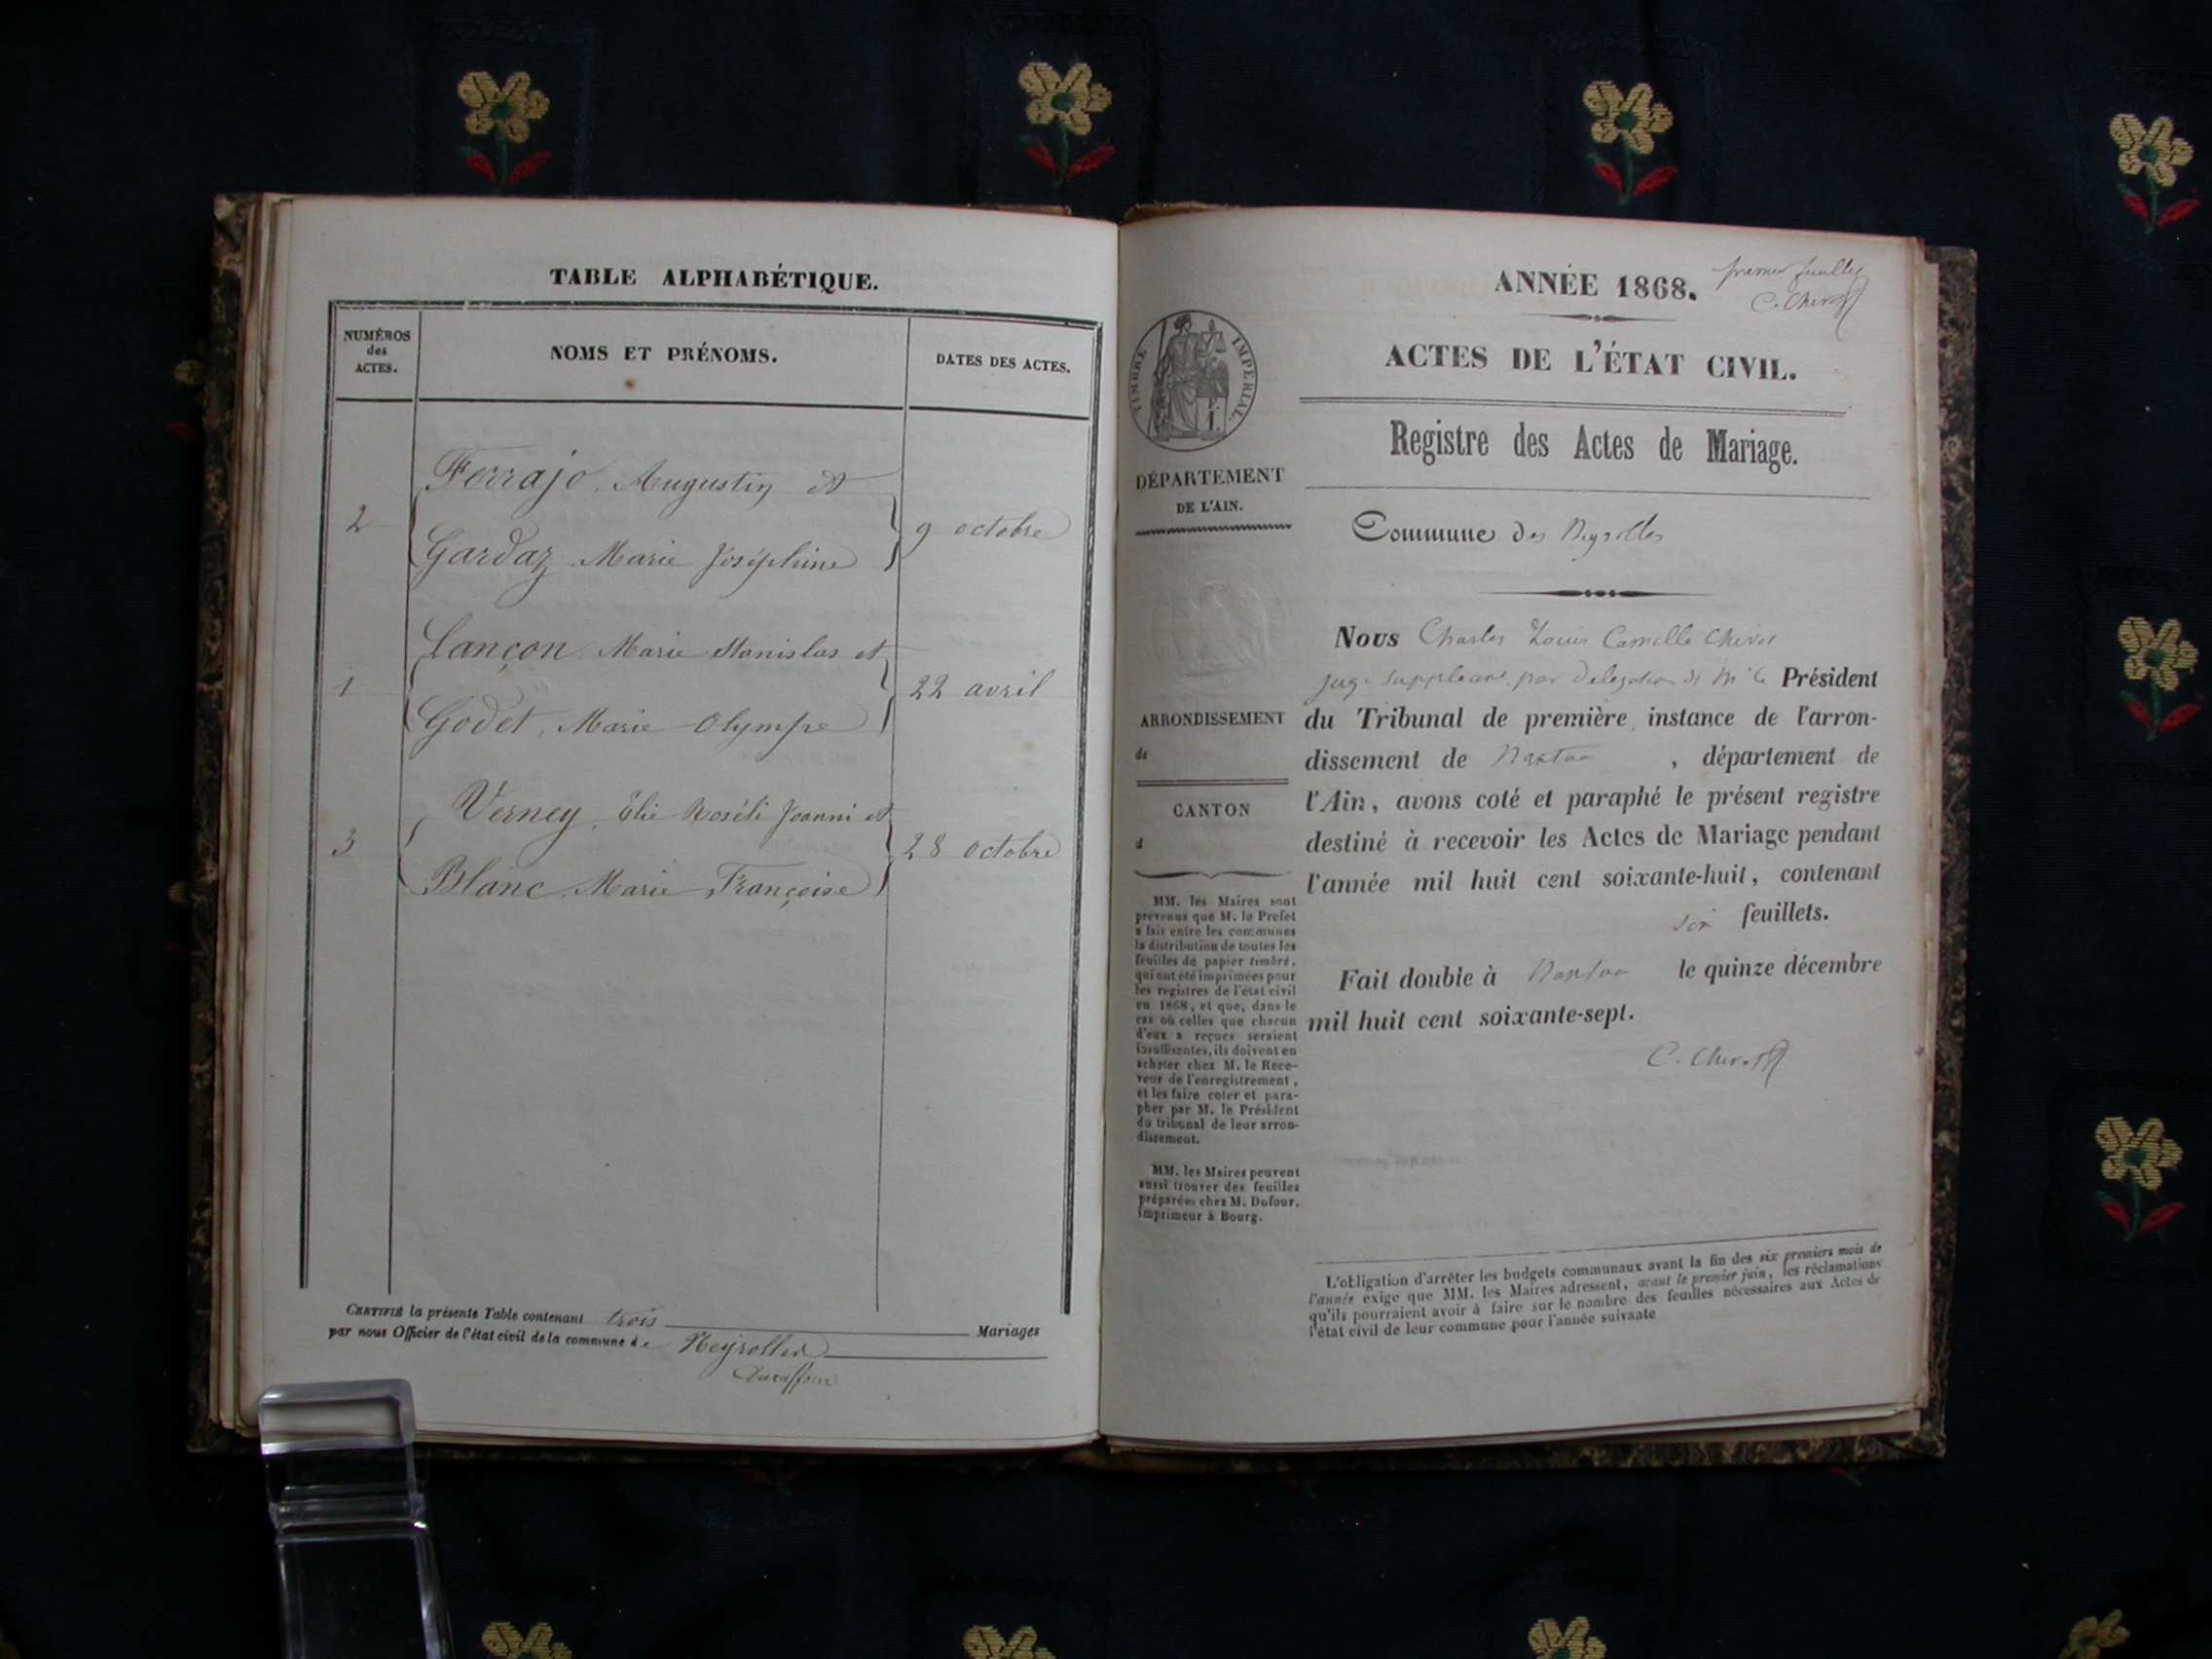 TABLE ALPHABÉTIQUE.
NUMÉROS
des
ACTES.
NOMS ET PRÉNOMS.
DATES DES ACTES.
Ferrajo Augustin et
2
9 octobre
Gardaz Marie Joséphine
Lançon Marie Stanislas et
1
22 avril
Godet, Marie Olympe
Verney, Élie Joanni et
3
28 octobre
Blanc Marie Françoise
CERTIFIÉ la présente Table contenant trois Mariages
par nous Officier de l'état civil de la commune de Neyrolles
Duraffour
ANNÉE 1868.
premier feuillet
C. Chevot
ACTES DE L'ÉTAT CIVIL.
TIMBRE IMPERIAL
Registre des Actes de Mariage.
DÉPARTEMENT
DE L'AIN.
Commune des Neyrolles
Nous Charles Louis Camille Chevot
juge suppléant par délégation de Mr le Président
ARRONDISSEMENT
de
du Tribunal de première instance de l'arron-
dissement de Nantua, département de
CANTON
d
l'Ain, avons coté et paraphé le présent registre
destiné à recevoir les Actes de Mariage pendant
l'année mil huit cent soixante-huit, contenant
six feuillets.
Fait double à Nantua le quinze décembre
mil huit cent soixante-sept.
C. Chevot
MM. les Maires sont
prévenus que M. le Préfet
a fait entre les communes
la distribution de toutes les
feuilles de papier timbré,
qui ont été imprimées pour
les registres de l'état civil
en 1868, et que, dans le
cas où celles que chacun
d'eux a reçues seraient
insuffisantes, ils doivent en
acheter chez M. le Rece-
veur de l'enregistrement,
et les faire coter et para-
pher par M. le Président
du tribunal de leur arron-
dissement.
MM. les Maires peuvent
aussi trouver des feuilles
préparées chez M. Dufour,
imprimeur à Bourg.
L'obligation d'arrêter les budgets communaux avant la fin des six premiers mois de
l'année exige que MM. les Maires adressent, avant le premier juin, les réclamations
qu'ils pourraient avoir à faire sur le nombre des feuilles nécessaires aux Actes de
l'état civil de leur commune pour l'année suivante